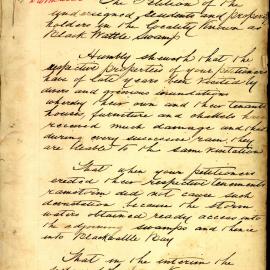 The Petition of the
undersigned residents and property
holders in the locality known as
Black Wattle Swamp
Humbly sheweth that the
respective properties of your petitioners
have of late years been visited by
divers and grievous inundations
whereby their own and their tenants
houses, furniture and chattels have
received much damage and that
during every successive rain, they
are liable to the same visitation
That when your petitioners
erected their respective tenements
rainstorm did not cause such
devastation because the storm
waters obtained ready access into
the adjoining swamps and thence
into Blackwattle Bay
That in the interim the